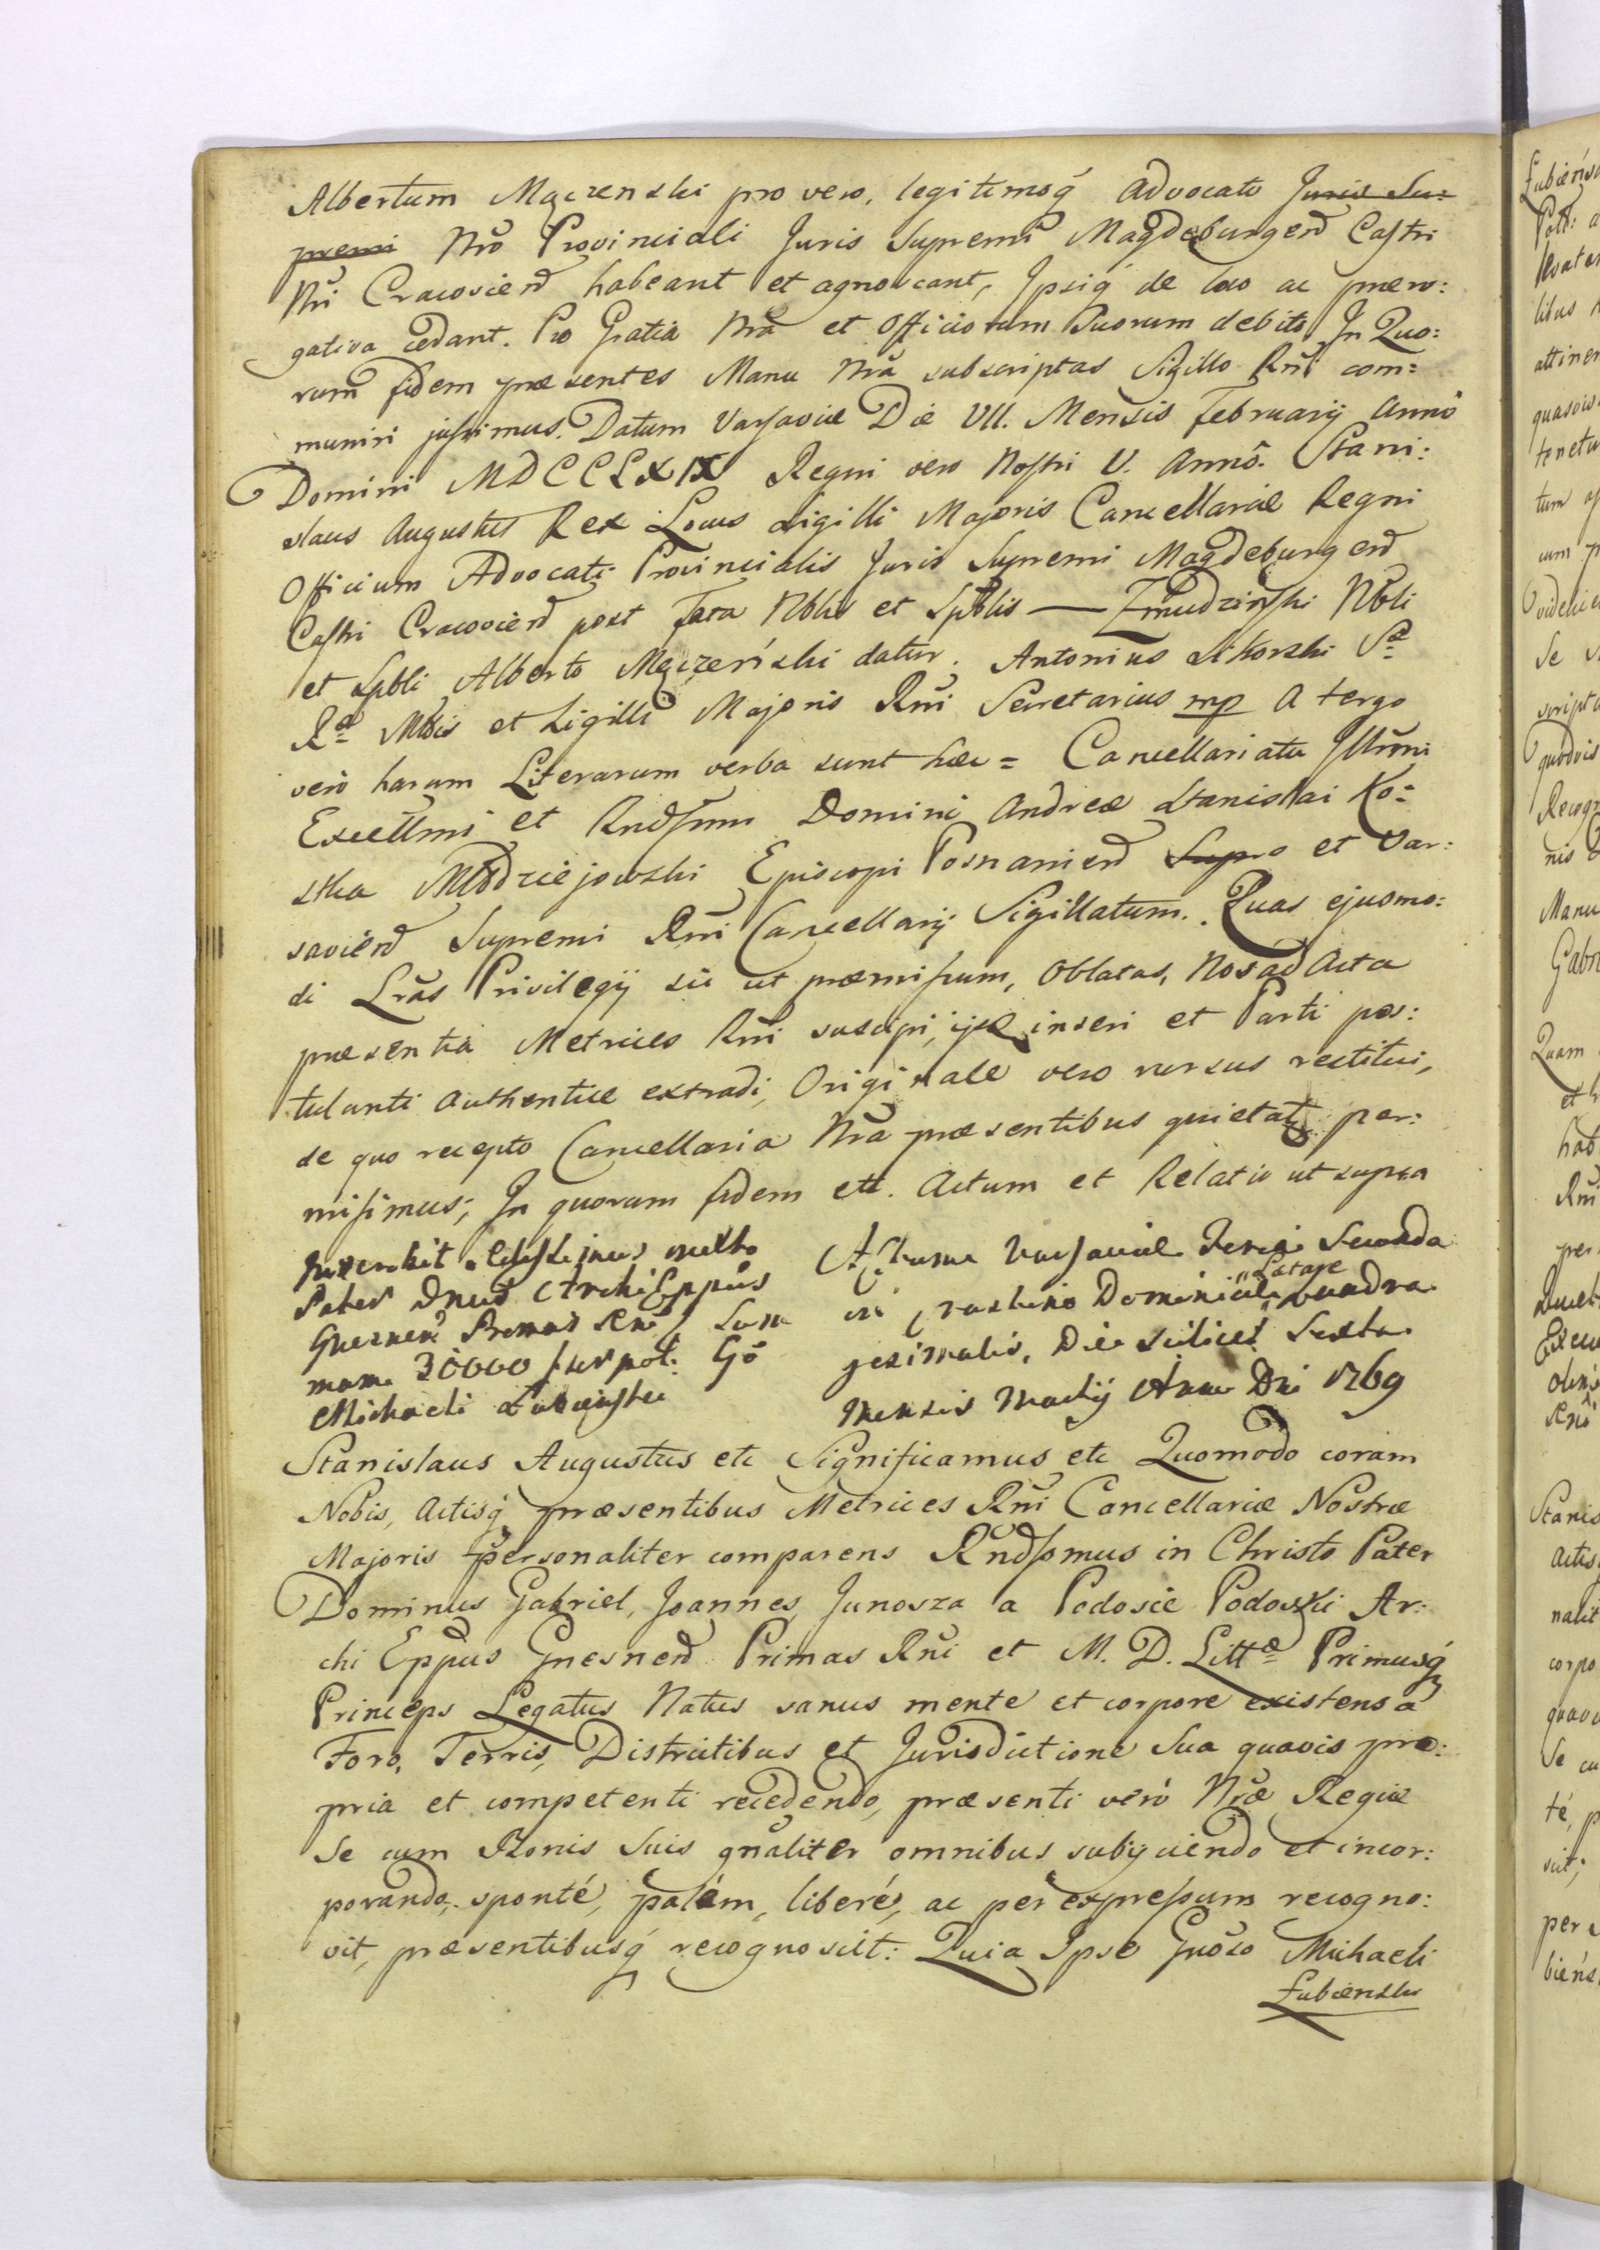 Albertum Mączenski pro vero, legitimoq́ Advocato Juris Su:
premi Nrõ Provinciali Juris Supremi Magdeburgen̄ Castri
Nrĩ Cracovien̄ habeant et agnoscant, Ipsiq́ de loco ac præro:
gativa cedant. Pro Gratia Nrã et Officiorum Suorum debito, In Quo:
rum fidem præsentes Manu Nrã subscriptas Sigillo Rñi com:
muniri jussimus. Datum Varsaviæ Die VII. Mensis Februarij Anno
Domini MDCCLXIX Regni vero Nostri V. Annõ. Stani:
slaus Augustus Rex Locus Sigilli Majoris Cancellariæ Regni
Officium Advocati Provincialis Juris Supremi Magdeburgen̄
Castri Cracovien̄ post Fata Nblis et Spblis — Zmudzinski Nbli
et Spbli Alberto Mączeński datur. Antonius Sikorski Sæ
Ræ Mttis et Sigilli Majoris Rñi Secretarius mp A tergo
verò harum Literarum verba sunt hæc = Cancellariatu Illrmi
Excellmi et Rndssmi Domini Andreæ Stanislai Ko:
stka Młodziejowski Episcopi Posnanien̄ Supro et Var:
savien̄ Supremi Rñi Cancellarij Sigillatum. Quas ejusmo:
di Lrãs Privilegij sic ut præmissum, Oblatas, Nos ad Acta
præsentia Metrices Rñi suscipi, ijsq inseri et Parti pos:
tulanti authentice extradi, Originale vero rursus restitui,
de quo recepto Cancellaria Nrã præsentibus quietatq per:
misimus; In quorum fidem ett. Actum et Relatio ut supra
Inscribit Celsissimus
Pater Dnus ArchiEppus
Gnesnen̄ Primas Rñi Sum
mam 30000 flor pol: Gõ
Michaeli Łubieński
Actum Varsaviæ Feria Secunda
in Crastino Dominicæ "Lætare Quadra
gesimalis, Die scilicet Sexta
Mensis Martij Anno Dni 1769
Stanislaus Augustus etc Significamus etc Quomodo coram
Nobis, Actisq́ præsentibus Metrices Rñi Cancellariæ Nostræ
Majoris personaliter comparens Rndssmus in Christo Pater
Dominus Gabriel, Joannes, Junosza a Podosie Podoski Ar:
chi Eppus Gnesnen̄ Primas Rñi et M. D. Littæ Primusq́
Princeps Legatus Natus sanus mente et corpore existens a
Foro, Terris, Districtibus et Jurisdictione Sua quavis pro:
pria et competenti recedendo, præsenti verò Nræ Regiæ
Se cum Bonis Suis gnãliter omnibus subijciendo et incor:
porando, sponté, palám, liberé, ac per expressum recogno:
vit, præsentibusq́ recognoscit: Quia Ipse Gnõso Michaeli
Łubienski